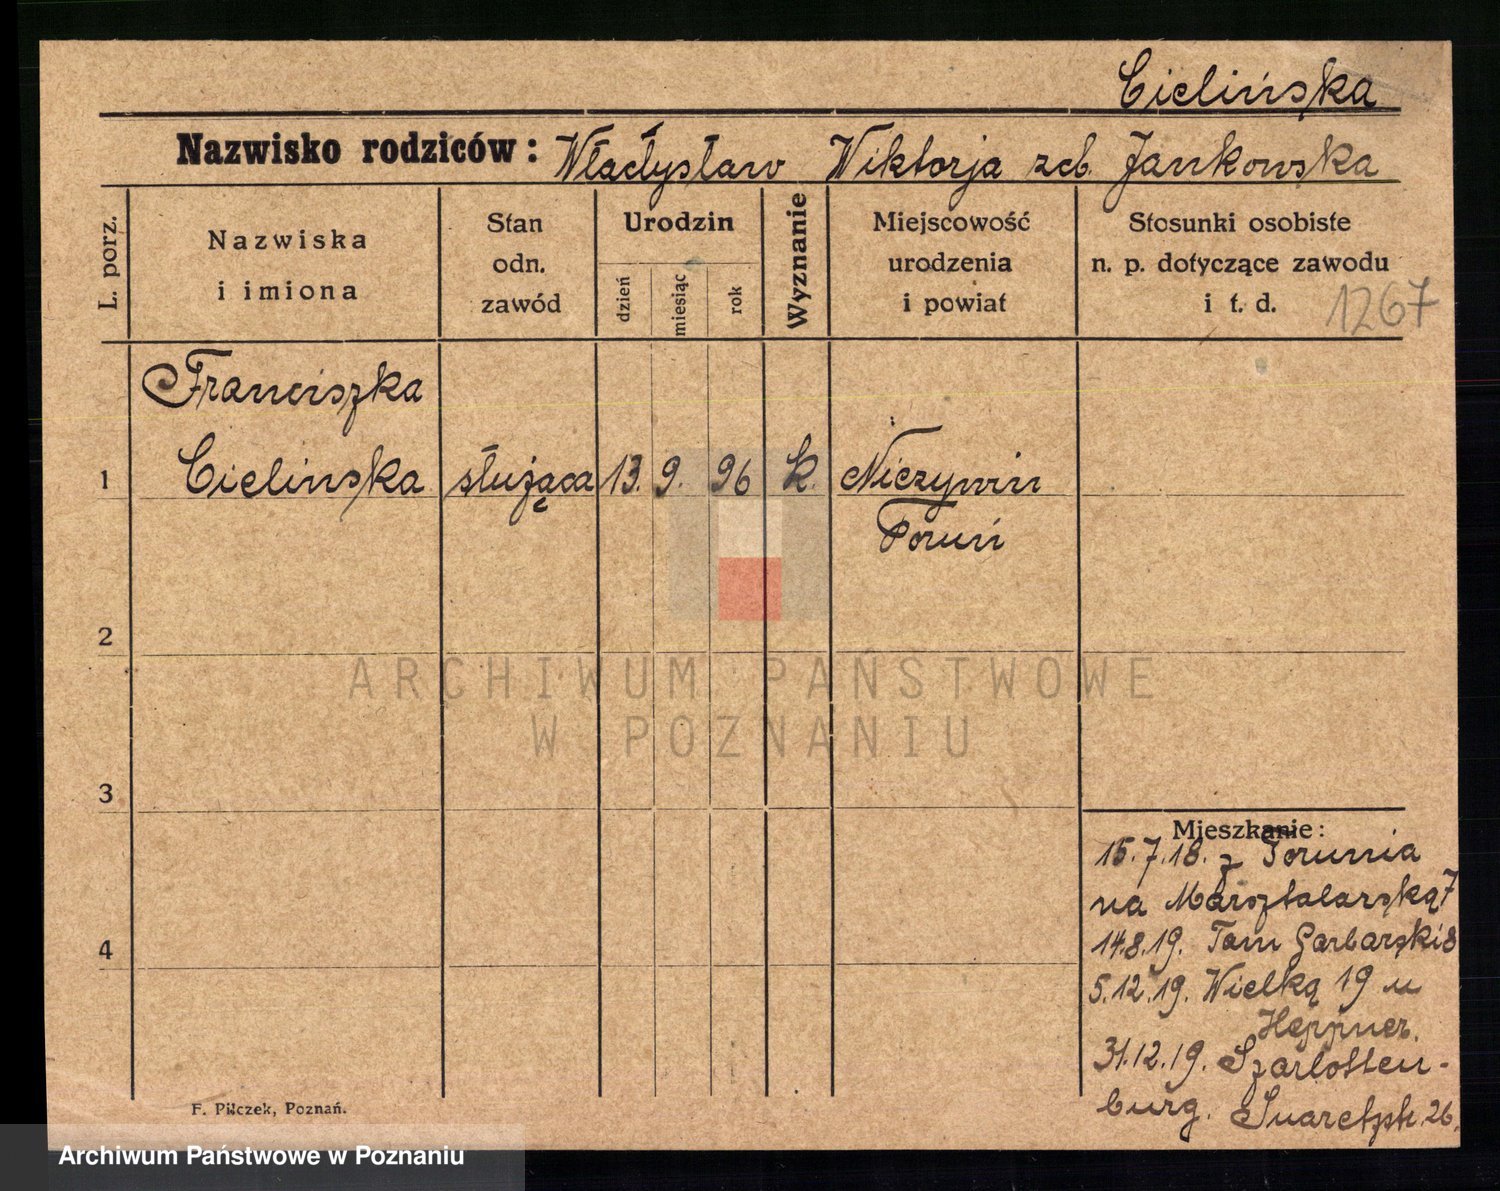 Cielińska
Nazwisko rodziców: Władysław Wiktorja Jankowska
L. porz.
Nazwiska
i imiona
Stan
odn.
zawód
Urodzin
dzień
miesiąc
rok
Wyznanie
Miejscowość
urodzenia
i powiat
Stosunki osobiste
n. p. dotyczące zawodu
i t. d.
1267
Franciszka
1 Cielinska służąca 13. 9. 96 k. Niczywin
Toruń
2
3
4
Mieszkanie:
15.7.18. z Torunia
na Marsztalarską 7
14.8.19. Tam Garbarski 8
5.12.19. Wielką 19 u
Heppner.
31.12.19. Szarlotten-
burg. Suaretzstr. 26.
F. Pilczek, Poznań.
ARCHIWUM PAŃSTWOWE
W POZNANIU
Archiwum Państwowe w Poznaniu